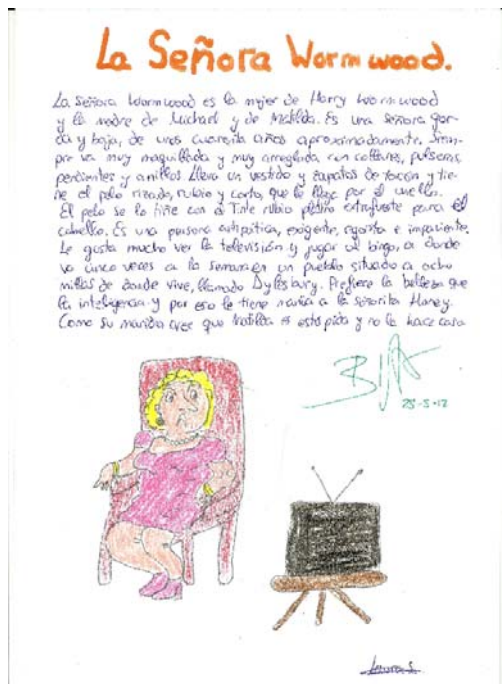 La Señora Wormwood.
La Señora Wormwood es la mujer de Harry Wormwood
y la madre de Michael y de Matilda. Es una señora gor-
da y baja, de unos cuarenta años aproximadamente. Siem-
pre va muy maquillada y muy arreglada, con collares, pulseras,
pendientes y anillos. Lleva un vestido y zapatos de tacón y tie-
ne el pelo rizado, rubio y corto, que le llega por el cuello.
El pelo se lo tiñe con el Tinte rubio platino extrafuerte para el
cabello. Es una persona antipática, exigente, egoista e impaciente.
Le gusta mucho ver la televisión y jugar al bingo, a donde
va cinco veces a la semana en un pueblo situado a ocho
millas de donde vive, llamado Aylesbury. Prefiere la belleza que
la inteligencia y por eso le tiene manía a la señorita Honey.
Como su marido cree que Matilda es estúpida y no la hace caso
28-5-12
Laura S.